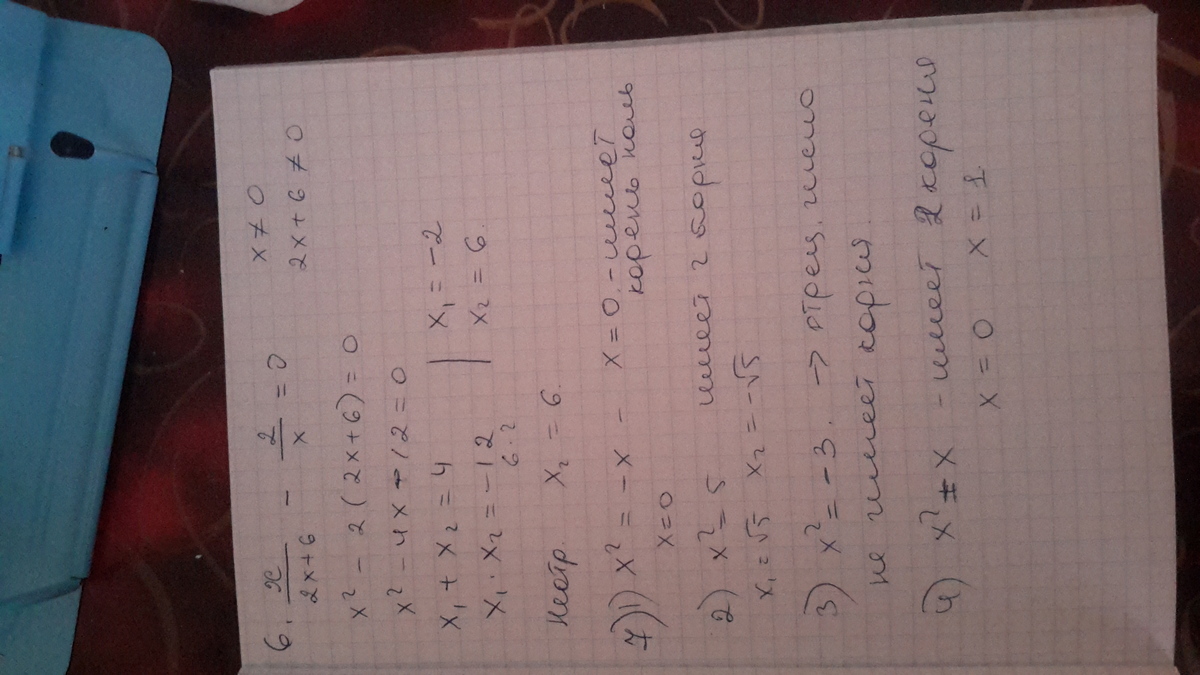 6. x/(2x+6) - 2/x = 0 x ≠ 0
2x+6 ≠ 0
x² - 2(2x+6) = 0
x² - 4x - 12 = 0
x₁ + x₂ = 4 | x₁ = -2
x₁ · x₂ = -12 | x₂ = 6.
6·2
x₂ = 6.
7) 1) x² = -x - x = 0 - имеет
x=0 корень ноль
2) x² = 5 имеет 2 корня
x₁ = √5 x₂ = -√5
3) x² = -3. → отрец. число
не имеет корня
4) x² = x - имеет 2 кореня
x = 0 x = 1.